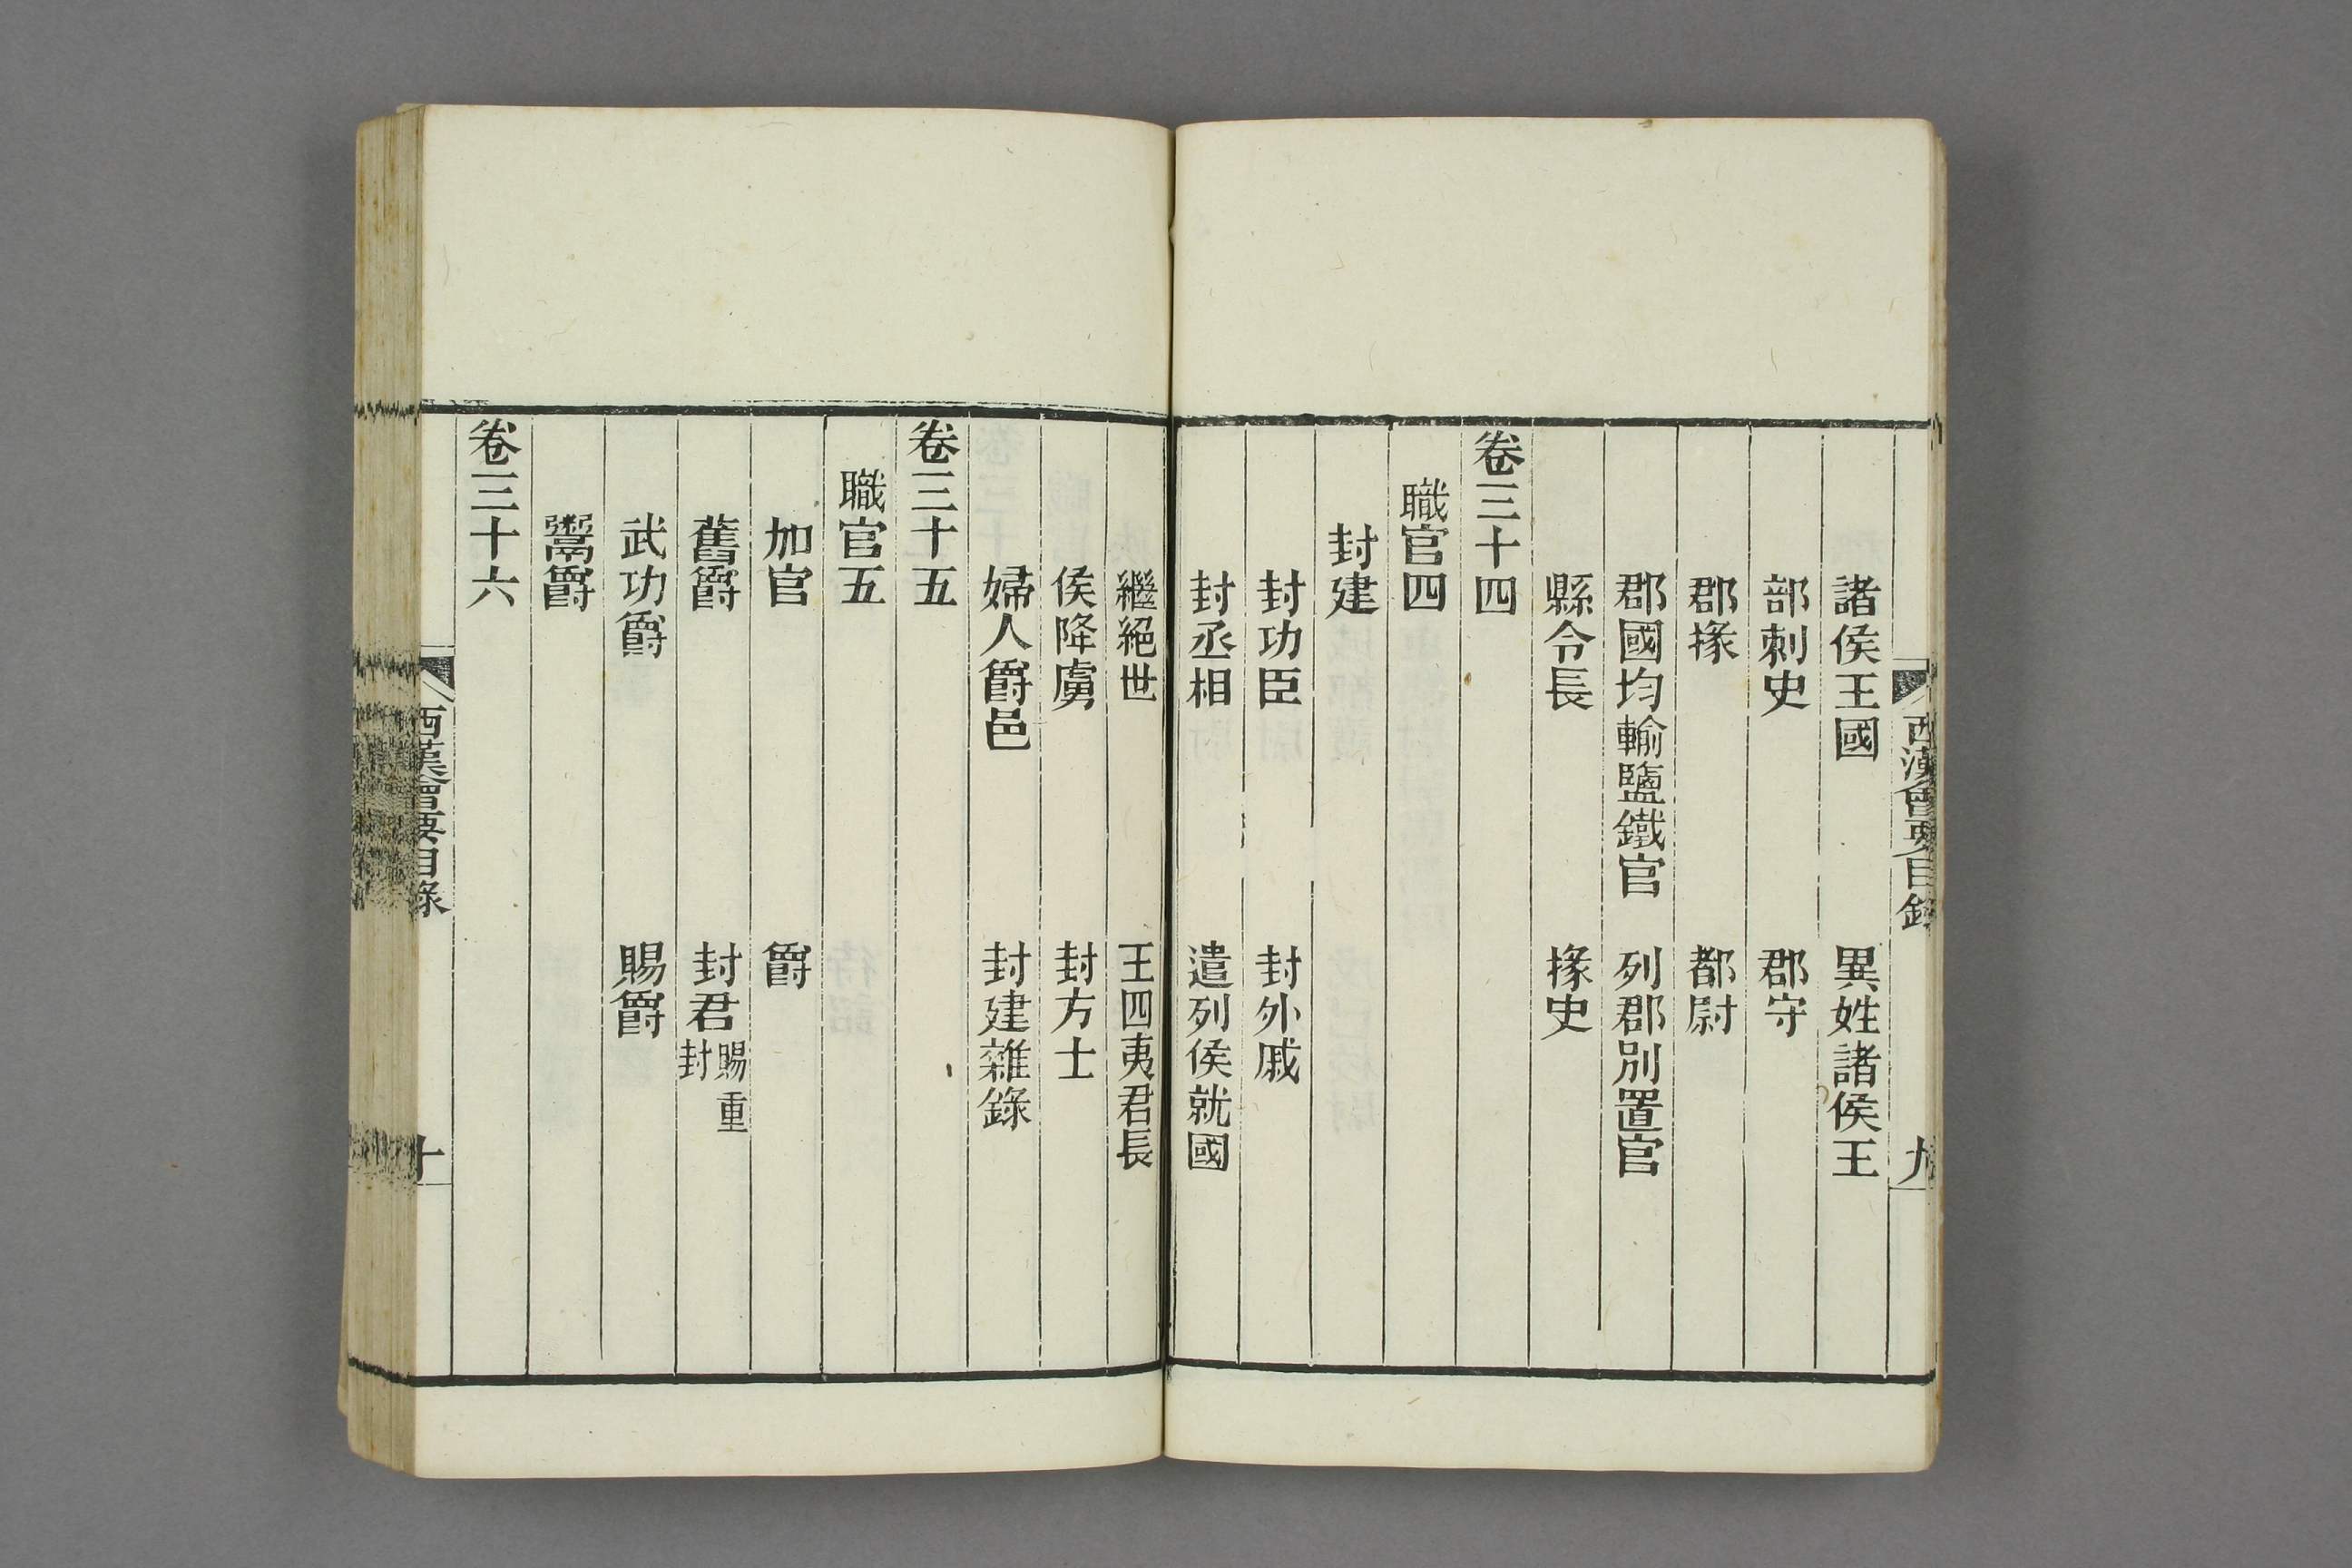 西漢會要目錄 九
諸侯王國 異姓諸侯王
部刺史 郡守
郡掾 都尉
郡國均輸鹽鐵官 列郡別置官
縣令長 掾史
卷三十四
職官四
封建
封功臣 封外戚
封丞相 遣列侯就國
繼絕世 王四夷君長
侯降虜 封方士
婦人爵邑 封建雜錄
卷三十五
職官五
加官 爵
舊爵 封君賜重封
武功爵 賜爵
鬻爵
卷三十六
西漢會要目錄 十